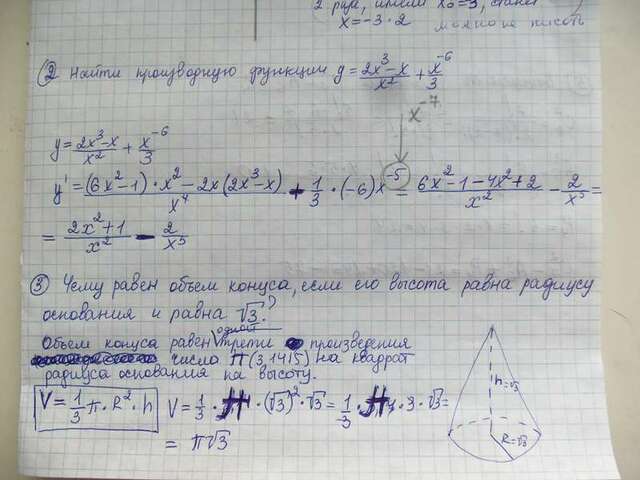 2 р
x=-3·2 можно не писать
② Найти производную функции y = (2x³-x)/x² + x⁻⁶/3
x⁻⁷
y = (2x³-x)/x² + x⁻⁶/3
y' = ((6x²-1)·x² - 2x(2x³-x))/x⁴ + 1/3·(-6)x⁻⁵ = (6x²-1-4x²+2)/x² - 2/x⁵ =
= (2x²+1)/x² - 2/x⁵
③ Чему равен объем конуса, если его высота равна радиусу
основания и равна √3?
одной
Объем конуса равен трети произведения
число П(3,1415) на квадрат
радиуса основания на высоту.
V = 1/3 π·R²·h V = 1/3·П·(√3)²·√3 = 1/3·П·3·√3 =
= π√3
h=√3
R=√3